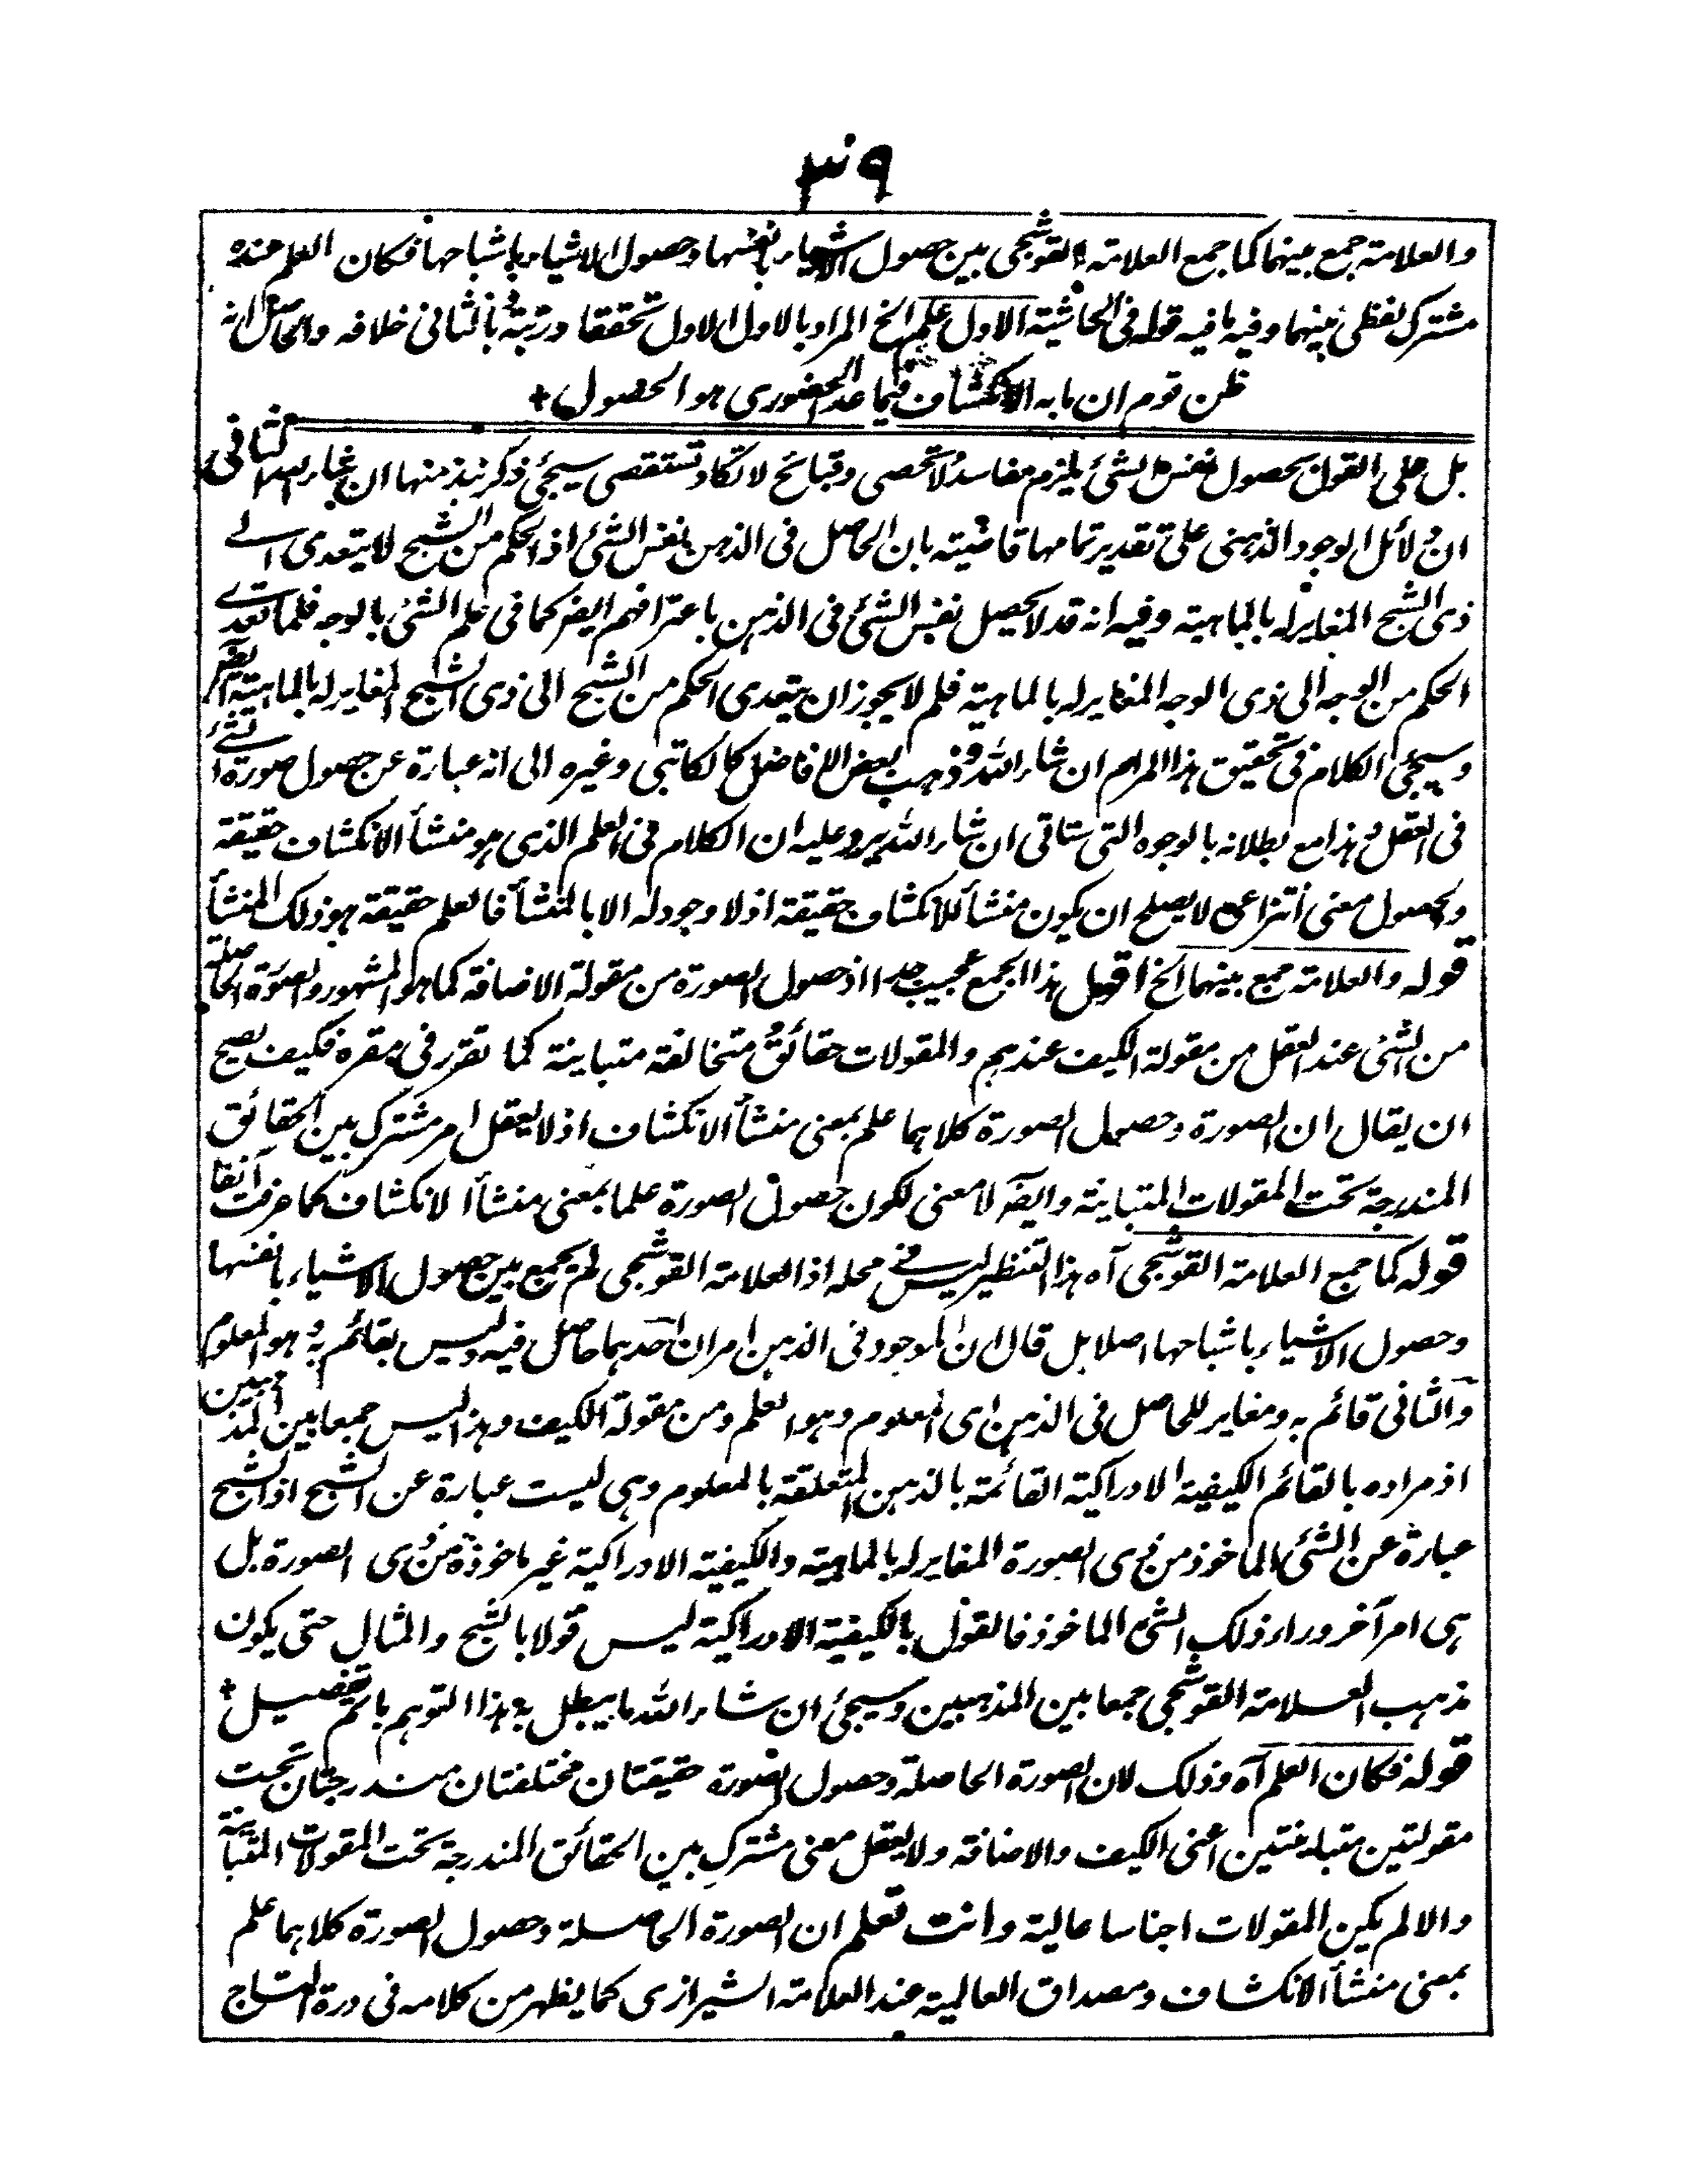 ٣٩
والعلامة جمع بينهما كما جمع العلامة القوشجى بين حصول الاشياء بانفسها وحصول الاشياء باشباحها فكان العلم عنده
مشترك لفظى بينهما وفيه ما فيه قوله فى الحاشية الاول علم الخ المراد بالاول الاول تحققا ورتبة وبالثانى خلافه والحاصل انه
ظن قوم ان ما به الانكشاف فيما عدا الحضورى هو الحصول +
بل على القول بحصول نفس الشئ يلزم مفاسد لا تحصى وقبائح لا تكاد تستقصى سيجئ ذكر نبذ منها ان شاء الله الثانى
ان دلائل الوجود الذهنى على تقدير تمامها قاضية بان الحاصل فى الذهن نفس الشئ اذ الحكم من الشبح لا يتعدى الے
ذى الشبح المغاير له بالماهية وفيه انه قد لا يحصل نفس الشئ فى الذهن باعترافهم ايضا كما فى علم الشئ بالوجه فلما تعدے
الحكم من الوجه الى ذى الوجه المغاير له بالماهية فلم لا يجوز ان يتعدى الحكم من الشبح الى ذى الشبح المغاير له بالماهية
وسيجئ الكلام فى تحقيق هذا المرام ان شاء الله وذهب بعض الافاضل كالكاتبى وغيره الى انه عبارة عن حصول صورة الشئ
فى العقل وهذا مع بطلانه بالوجوه التى ستاتى ان شاء الله يرد عليه ان الكلام فى العلم الذى هو منشأ الانكشاف حقيقة
والحصول معنى انتزاعى لا يصلح ان يكون منشأ للانكشاف حقيقة اذ لا وجود له الا بالمنشأ فالعلم حقيقة هو ذلك المنشأ
قوله والعلامة جمع بينهما الخ اقول هذا الجمع عجيب جدا اذ حصول الصورة من مقولة الاضافة كما هو المشهور والصورة الحاصلة
من الشئ عند العقل من مقولة الكيف عندهم والمقولات حقائق متخالفة متباينة كما تقرر فى مقره فكيف يصح
ان يقال ان الصورة وحصول الصورة كلاهما علم بمعنى منشأ الانكشاف اذ لا يعقل امر مشترك بين الحقائق
المندرجة تحت المقولات المتباينة وايضا لا معنى لكون حصول الصورة علما بمعنى منشأ الانكشاف كما عرفت آنفا
قوله كما جمع العلامة القوشجى آه هذا التنظير ليس فے محله اذ العلامة القوشجى لم يجمع بين حصول الاشياء بانفسها
وحصول الاشياء باشباحها اصلا بل قال ان الموجود فى الذهن امران احدهما حاصل فيه وليس بقائم به وهو المعلوم
والثانى قائم به ومغاير للحاصل فى الذهن اى المعلوم وهو العلم ومن مقولة الكيف وهذا ليس جمعا بين المذهبين
اذ مراده بالقائم الكيفية الادراكية القائمة بالذهن المتعلقة بالمعلوم وهى ليست عبارة عن الشبح اذ الشبح
عبارة عن الشئ الماخوذ من ذى الصورة المغاير له بالماهية والكيفية الادراكية غير ماخوذة من ذى الصورة بل
هى امر آخر وراء ذلك الشئ الماخوذ فالقول بالكيفية الادراكية ليس قولا بالشبح والمثال حتى يكون
مذهب العلامة القوشجى جمعا بين المذهبين وسيجئ ان شاء الله ما يبطل به هذا التوهم باتم تفصيل +
قوله فكان العلم آه وذلك لان الصورة الحاصلة وحصول الصورة حقيقتان مختلفتان مندرجتان تحت
مقولتين متباينتين اعنى الكيف والاضافة ولا يعقل معنى مشترك بين الحقائق المندرجة تحت المقولات المتباينة
والا لم يكن المقولات اجناسا عالية وانت تعلم ان الصورة الحاصلة وحصول الصورة كلاهما علم
بمعنى منشأ الانكشاف ومصداق العالمية عند العلامة الشيرازى كما يظهر من كلامه فى درة التاج